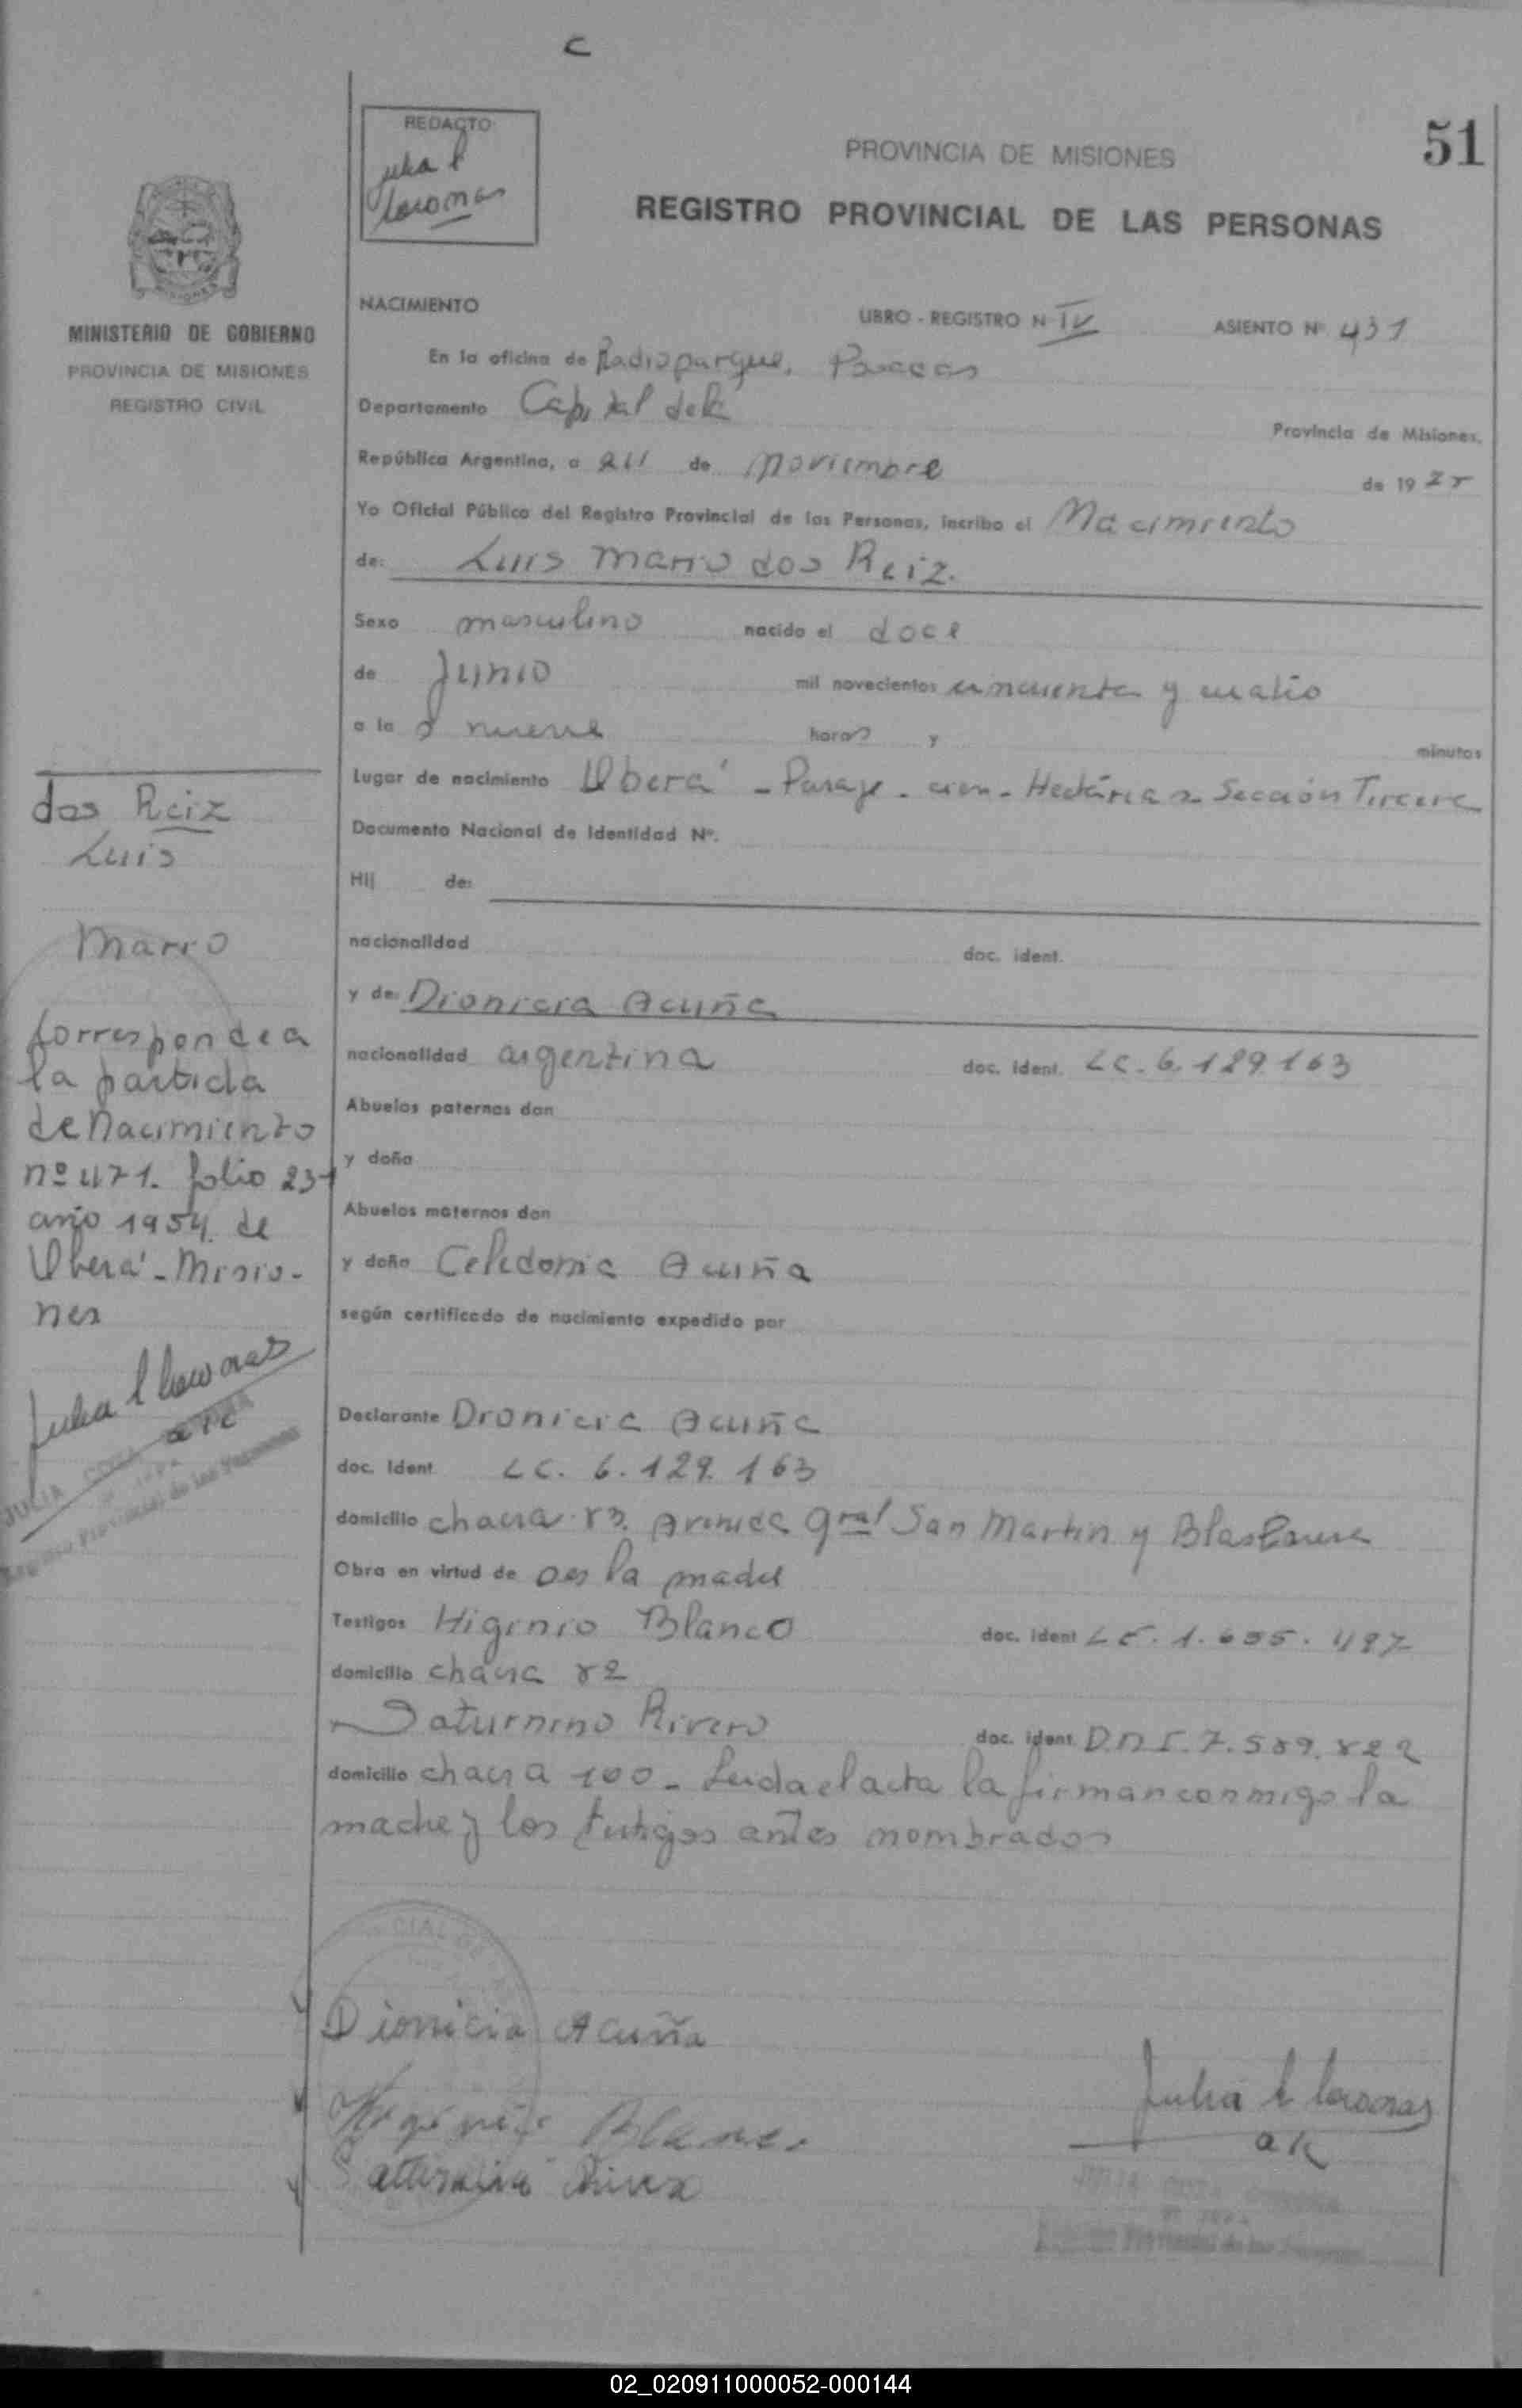 C
51
REDACTO
PROVINCIA DE MISIONES
REGISTRO PROVINCIAL DE LAS PERSONAS
MINISTERIO DE GOBIERNO
PROVINCIA DE MISIONES
REGISTRO CIVIL
NACIMIENTO LIBRO - REGISTRO N IV ASIENTO Nº 431
En la oficina de Radioparque. Posadas
Departamento Capital de la Provincia de Misiones.
República Argentina, a de noviembre de 19
Yo Oficial Público del Registro Provincial de las Personas, incribo el Nacimiento
de: Luis Mario dos Reiz.
Sexo masculino nacido el doce
de Junio mil novecientos cincuenta y cuatro
a la s nueve horas y minutos
Lugar de nacimiento Oberá - Paraje - cien - Hectáreas Sección Tercera
Documento Nacional de Identidad Nº.
Hij de:
nacionalidad doc. ident.
y de: Dionicia Acuña
nacionalidad argentina doc. ident. LC. 6.129.163
Abuelos paternos don
y doña
Abuelos maternos don
y doña Celedonia Acuña
según certificado de nacimiento expedido por
Declarante Dionicia Acuña
doc. Ident LC. 6.129.163
domicilio chacra 83. Avenida Gral San Martin y Blas
Obra en virtud de ser la madre
Testigos Higinio Blanco doc. ident L E. 1.655.487
domicilio chacra 82
Saturnino Rivero doc. ident. D.N.I. 7.589.822
domicilio chacra 100 - Leida el acta la firman conmigo la
madre y los testigos antes nombrados
dos Reiz
Luis
Mario
Corresponde a
la partida
de Nacimiento
nº 471. folio 231
año 1954. de
Oberá - Misio-
nes
Dionicia Acuña
Higinio Blanco
02_020911000052-000144